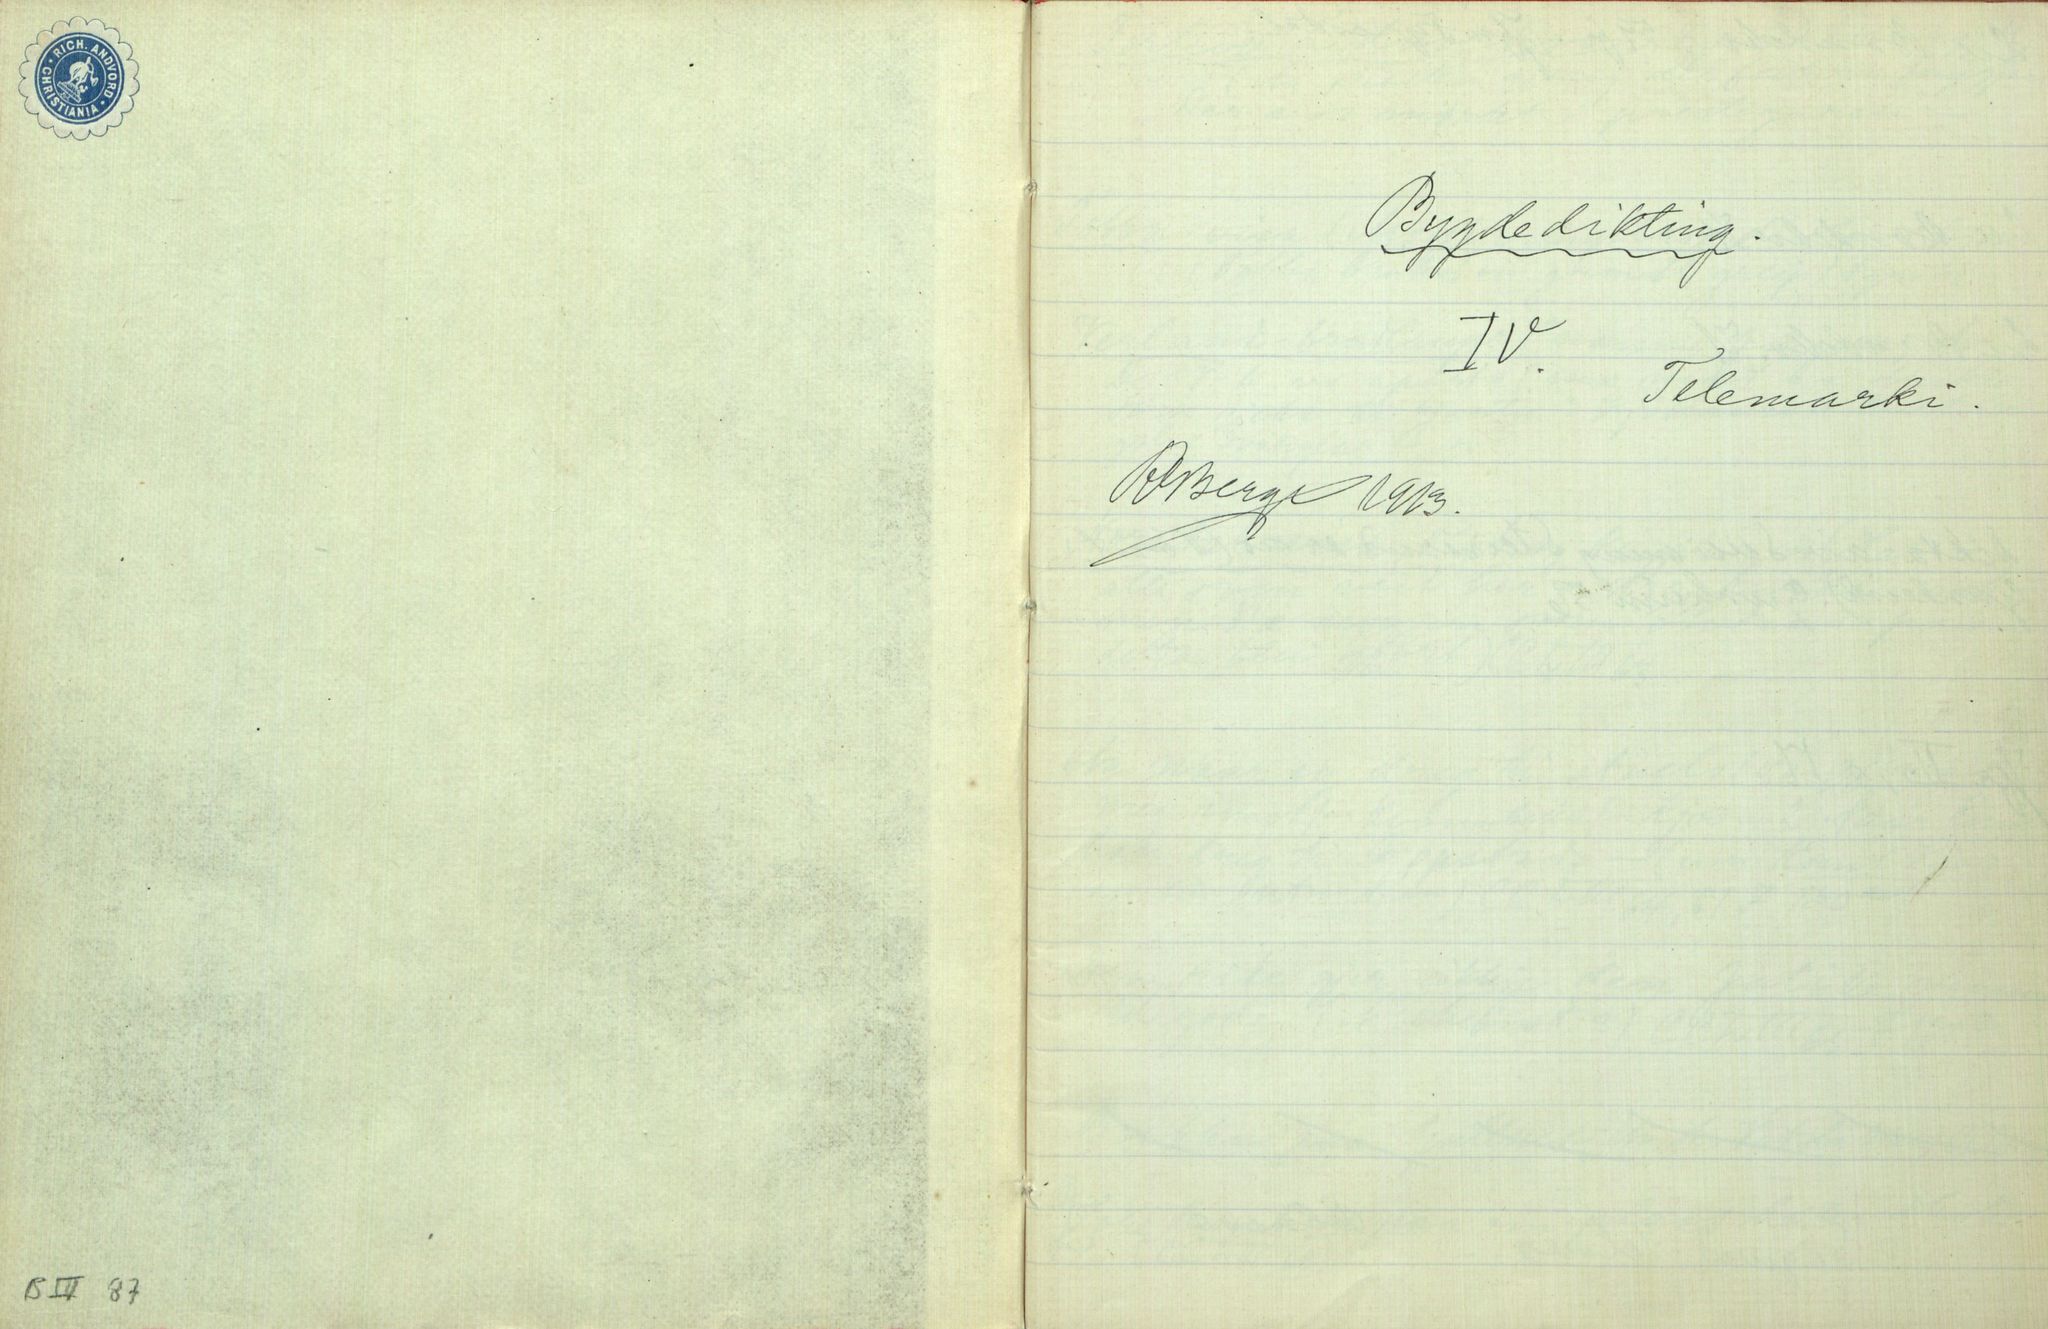 RICH. ANDVORD
CHRISTIANIA
B III 87
Bygdedikting.
IV.
Telemarki.
RBerge 1913.